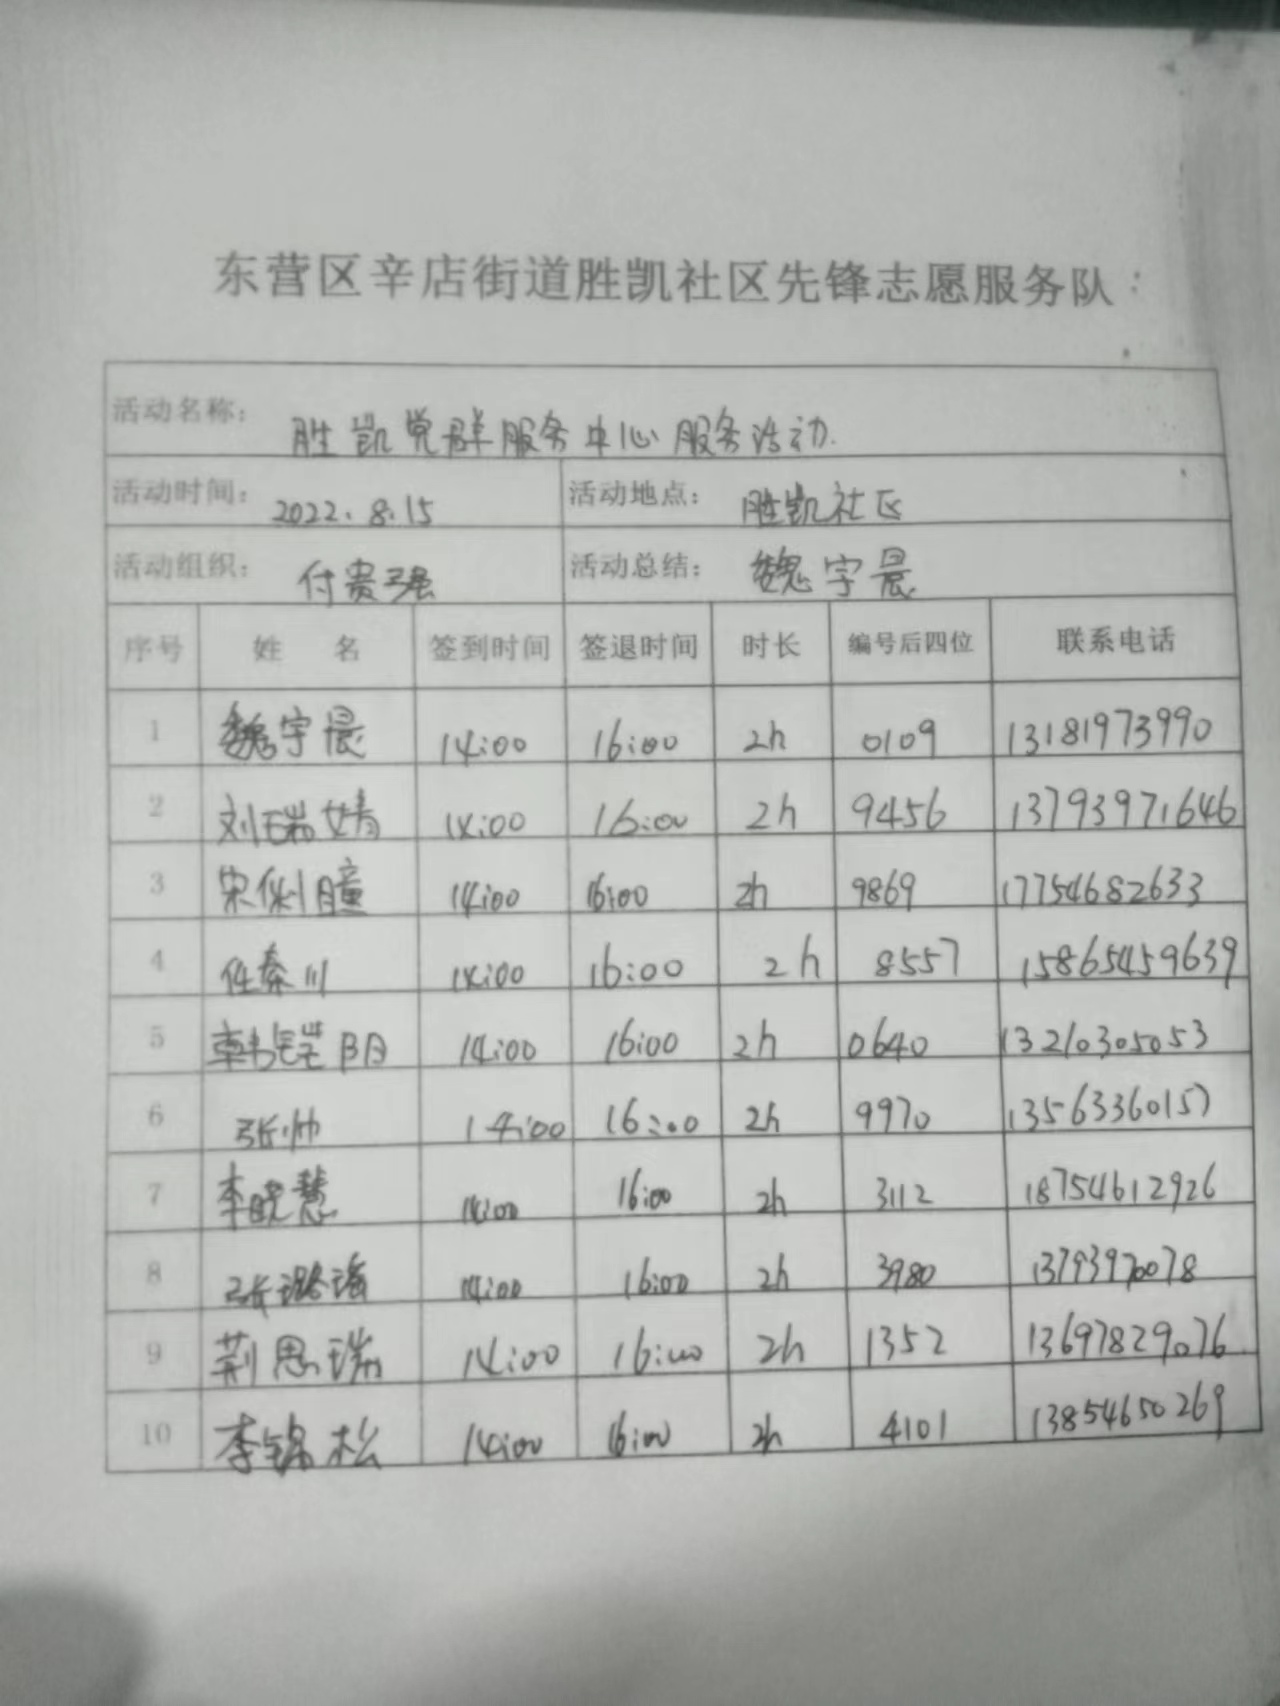 东营区辛店街道胜凯社区先锋志愿服务队
活动名称： 胜凯党群服务中心服务活动.
活动时间： 2022.8.15 活动地点： 胜凯社区
活动组织： 付贵强 活动总结： 魏宇晨
序号 姓 名 签到时间 签退时间 时长 编号后四位 联系电话
1 魏宇晨 14:00 16:00 2h 0109 13181973990
2 刘瑞婧 14:00 16:00 2h 9456 13793971646
3 宋俐瞳 14:00 16:00 2h 9869 17754682633
4 任秦川 14:00 16:00 2h 8557 15865459639
5 韩 阳 14:00 16:00 2h 0640 13210305053
6 张帅 14:00 16:00 2h 9970 13563360157
7 李晓慧 14:00 16:00 2h 3112 18754612926
8 张璐瑶 14:00 16:00 2h 3980 13793970078
9 荆思瑞 14:00 16:00 2h 1352 13697829076
10 李锦松 14:00 16:00 2h 4101 13854650269